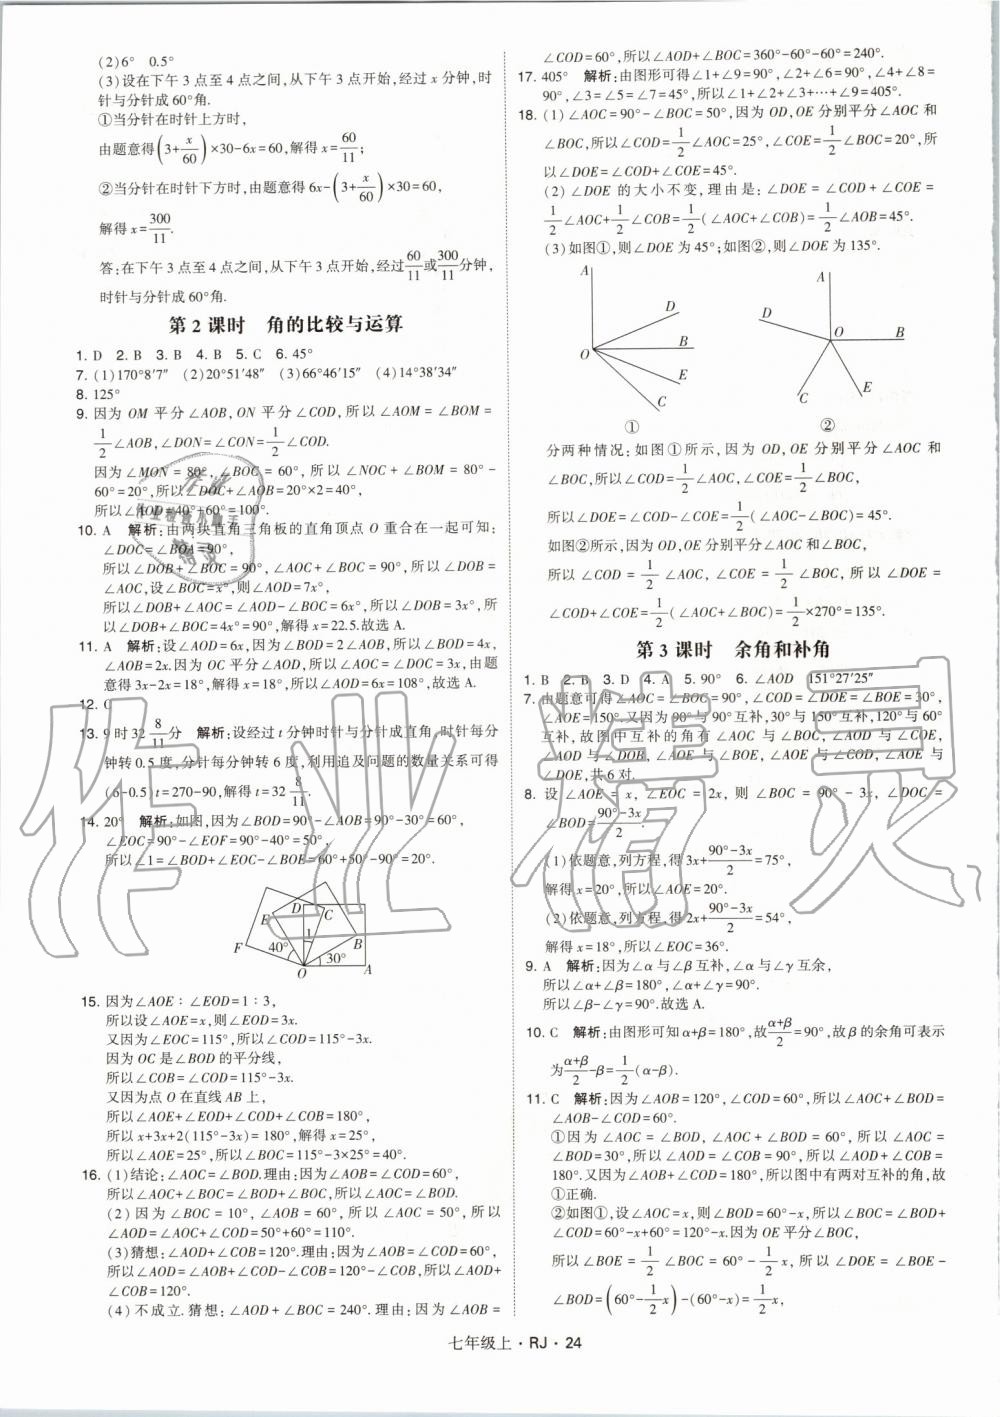 (2)6° 0.5°
(3)设在下午3点至4点之间,从下午3点开始,经过x分钟,时
针与分针成60°角.
①当分针在时针上方时,
由题意得(3+x/60)×30-6x=60,解得x=60/11;
②当分针在时针下方时,由题意得6x-(3+x/60)×30=60,
解得x=300/11.
答:在下午3点至4点之间,从下午3点开始,经过60/11或300/11分钟,
时针与分针成60°角.
第2课时 角的比较与运算
1. D 2. B 3. B 4. B 5. C 6. 45°
7. (1)170°8′7″ (2)20°51′48″ (3)66°46′15″ (4)14°38′34″
8. 125°
9. 因为OM平分∠AOB,ON平分∠COD,所以∠AOM=∠BOM=
1/2∠AOB,∠DON=∠CON=1/2∠COD.
因为∠MON=80°,∠BOC=60°,所以∠NOC+∠BOM=80°-
60°=20°,所以∠DOC+∠AOB=20°×2=40°,
所以∠AOD=40°+60°=100°.
10. A 解析:由两块直角三角板的直角顶点O重合在一起可知:
∠DOC=∠BOA=90°,
所以∠DOB+∠BOC=90°,∠AOC+∠BOC=90°,所以∠DOB=
∠AOC,设∠BOC=x°,则∠AOD=7x°,
所以∠DOB+∠AOC=∠AOD-∠BOC=6x°,所以∠DOB=3x°,所
以∠DOB+∠BOC=4x°=90°,解得x=22.5.故选A.
11. A 解析:设∠AOD=6x,因为∠BOD=2∠AOB,所以∠BOD=4x,
∠AOB=2x.因为OC平分∠AOD,所以∠AOC=∠DOC=3x,由题
意得3x-2x=18°,解得x=18°,所以∠AOD=6x=108°,故选A.
12. C
13. 9时32 8/11分 解析:设经过t分钟时针与分针成直角,时针每分
钟转0.5度,分针每分钟转6度,利用追及问题的数量关系可得
(6-0.5)t=270-90,解得t=32 8/11.
14. 20° 解析:如图,因为∠BOD=90°-∠AOB=90°-30°=60°,
∠EOC=90°-∠EOF=90°-40°=50°,
所以∠1=∠BOD+∠EOC-∠BOE=60°+50°-90°=20°.
D
C
E
B
F
1
40°
30°
O
A
15. 因为∠AOE∶∠EOD=1∶3,
所以设∠AOE=x,则∠EOD=3x.
又因为∠EOC=115°,所以∠COD=115°-3x.
因为OC是∠BOD的平分线,
所以∠COB=∠COD=115°-3x.
又因为点O在直线AB上,
所以∠AOE+∠EOD+∠COD+∠COB=180°,
所以x+3x+2(115°-3x)=180°,解得x=25°,
所以∠AOE=25°,所以∠BOC=115°-3×25°=40°.
16. (1)结论:∠AOC=∠BOD.理由:因为∠AOB=∠COD=60°,
所以∠AOC+∠BOC=∠BOD+∠BOC,所以∠AOC=∠BOD.
(2)因为∠BOC=10°,∠AOB=60°,所以∠AOC=50°,所以
∠AOD=∠AOC+∠COD=50°+60°=110°.
(3)猜想:∠AOD+∠COB=120°.理由:因为∠AOB=∠COD=60°,
所以∠AOD=∠AOB+∠COD-∠COB=120°-∠COB,所以∠AOD+
∠COB=120°.
(4)不成立.猜想:∠AOD+∠BOC=240°.理由:因为∠AOB=
∠COD=60°,所以∠AOD+∠BOC=360°-60°-60°=240°.
17. 405° 解析:由图形可得∠1+∠9=90°,∠2+∠6=90°,∠4+∠8=
90°,∠3=∠5=∠7=45°,所以∠1+∠2+∠3+…+∠9=405°.
18. (1)∠AOC=90°-∠BOC=50°,因为OD,OE分别平分∠AOC和
∠BOC,所以∠COD=1/2∠AOC=25°,∠COE=1/2∠BOC=20°,所
以∠DOE=∠COD+∠COE=45°.
(2)∠DOE的大小不变,理由是:∠DOE=∠COD+∠COE=
1/2∠AOC+1/2∠COB=1/2(∠AOC+∠COB)=1/2∠AOB=45°.
(3)如图①,则∠DOE为45°;如图②,则∠DOE为135°.
A
D
B
O
E
C
①
A
D
O
B
C
E
②
分两种情况:如图①所示,因为OD,OE分别平分∠AOC和
∠BOC,所以∠COD=1/2∠AOC,∠COE=1/2∠BOC,
所以∠DOE=∠COD-∠COE=1/2(∠AOC-∠BOC)=45°.
如图②所示,因为OD,OE分别平分∠AOC和∠BOC,
所以∠COD=1/2∠AOC,∠COE=1/2∠BOC,所以∠DOE=
∠COD+∠COE=1/2(∠AOC+∠BOC)=1/2×270°=135°.
第3课时 余角和补角
1. B 2. B 3. D 4. A 5. 90° 6. ∠AOD 151°27′25″
7. 由题意可得∠AOC=∠BOC=90°,∠COD=∠DOE=∠BOE=30°,
∠AOE=150°.又因为90°与90°互补,30°与150°互补,120°与60°
互补,故图中互补的角有∠AOC与∠BOC,∠AOD与∠COE,
∠AOD与∠DOB,∠AOE与∠BOE,∠AOE与∠COD,∠AOE与
∠DOE,共6对.
8. 设∠AOE=x,∠EOC=2x,则∠BOC=90°-3x,∠DOC=
∠BOD=(90°-3x)/2.
(1)依题意,列方程,得3x+(90°-3x)/2=75°,
解得x=20°,所以∠AOE=20°.
(2)依题意,列方程,得2x+(90°-3x)/2=54°,
解得x=18°,所以∠EOC=36°.
9. A 解析:因为∠α与∠β互补,∠α与∠γ互余,
所以∠α+∠β=180°,∠α+∠γ=90°.
所以∠β-∠γ=90°.故选A.
10. C 解析:由图形可知α+β=180°,故(α+β)/2=90°,故β的余角可表示
为(α+β)/2-β=1/2(α-β).
11. C 解析:因为∠AOB=120°,∠COD=60°,所以∠AOC+∠BOD=
∠AOB-∠COD=60°.
①因为∠AOC=∠BOD,∠AOC+∠BOD=60°,所以∠AOC=
∠BOD=30°,所以∠AOD=∠COB=90°,所以∠AOD+∠COB=
180°.又因为∠AOB+∠COD=180°,所以图中有两对互补的角,故
①正确.
②如图①,设∠AOC=x,则∠BOD=60°-x,所以∠BOC=∠BOD+
∠COD=60°-x+60°=120°-x.因为OE平分∠BOC,
所以∠BOE=1/2∠BOC=60°-1/2x,所以∠DOE=∠BOE-
∠BOD=(60°-1/2x)-(60°-x)=1/2x,
七年级上·RJ·24
作业精灵